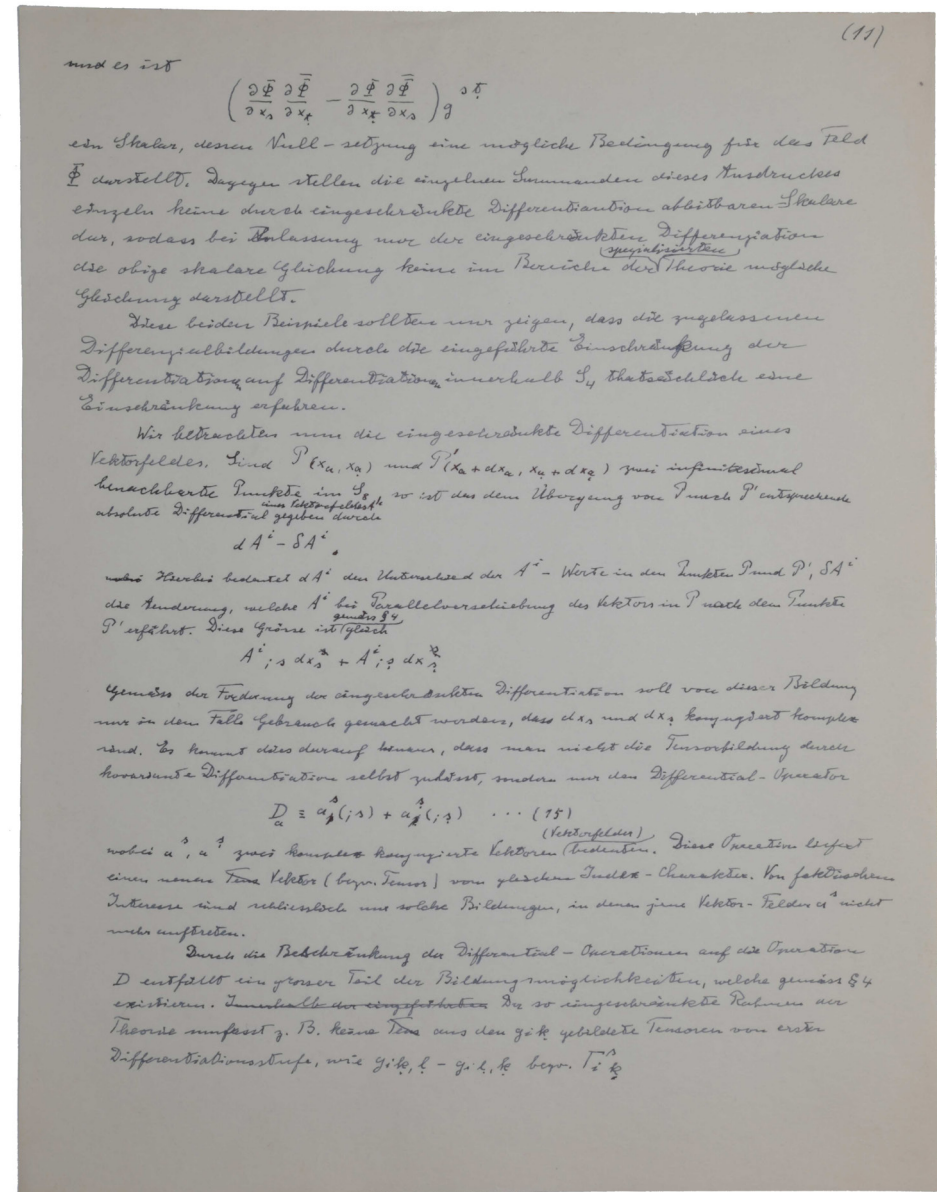 (11)
und es ist
(∂Φ/∂xₛ ∂Φ̄/∂x_ṭ − ∂Φ/∂x_ṭ ∂Φ̄/∂xₛ) g^{sṭ}
ein Skalar, dessen Null-setzung eine mögliche Bedingung für das Feld
Φ darstellt. Dagegen stellen die einzelnen Summanden dieses Ausdruckes
einzeln keine durch eingeschränkte Differentiantion ableitbaren Skalare
dar, sodass bei Anlassung nur der eingeschränkten Differenziation
die obige skalare Gleichung keine im Bereiche der (spezialisierten) Theorie mögliche
Gleichung darstellt.
Diese beiden Beispiele sollten nur zeigen, dass die zugelassenen
Differenzialbildungen durch die eingeführte Einschränkung der
Differentiationen auf Differentiationen innerhalb S₄ thatsächlich eine
Einschränkung erfahren.
Wir betrachten nun die eingeschränkte Differentiation eines
Vektorfeldes. Sind P(xₐ, xₐ̣) und P'(xₐ + dxₐ, xₐ̣ + dxₐ̣) zwei infinitesimal
benachbarte Punkte im S₈, so ist das dem Übergang von P nach P' entsprechende
absolute Differential eines Vektorfeldes Aⁱ gegeben durch
dAⁱ − δAⁱ.
Hierbei bedeutet dAⁱ den Unterschied der Aⁱ - Werte in den Punkten P und P', δAⁱ
die Aenderung, welche Aⁱ bei Parallelverschiebung des Vektors in P nach dem Punkte
P' erfährt. Diese Grösse ist (gemäss § 4) gleich
Aⁱ;s dxₛ + Aⁱ;ṣ dx_ṣ
Gemäss der Forderung der eingeschränkten Differentiation soll von dieser Bildung
nur in dem Falle Gebrauch gemacht werden, dass dxₛ und dx_ṣ konjugiert komplex
sind. Es kommt dies darauf hinaus, dass man nicht die Tensorbildung durch
kovariante Differentiation selbst zulässt, sondern nur den Differential-Operator
D_a ≡ aˢ(;s) + a^ṣ(;ṣ) ··· (15)
wobei aˢ, a^ṣ zwei komplex konjugierte Vektoren (Vektorfelder) bedeuten. Diese Operation liefert
einen neuen Vektor (bezw. Tensor) vom gleichen Index-Charakter. Von faktischem
Interesse sind schliesslich nur solche Bildungen, in denen jene Vektor-Felder aˢ nicht
mehr auftreten.
Durch die Beschränkung der Differential-Operationen auf die Operation
D entfällt ein grosser Teil der Bildungsmöglichkeiten, welche gemäss § 4
existieren. Innerhalb der eingeführten Der so eingeschränkte Rahmen der
Theorie umfasst z. B. keine aus den gik gebildete Tensoren von erster
Differentiationsstufe, wie g_{iḳ,ḷ} − g_{iḷ,ḳ} bezw. Γ_iˢ_ḳ